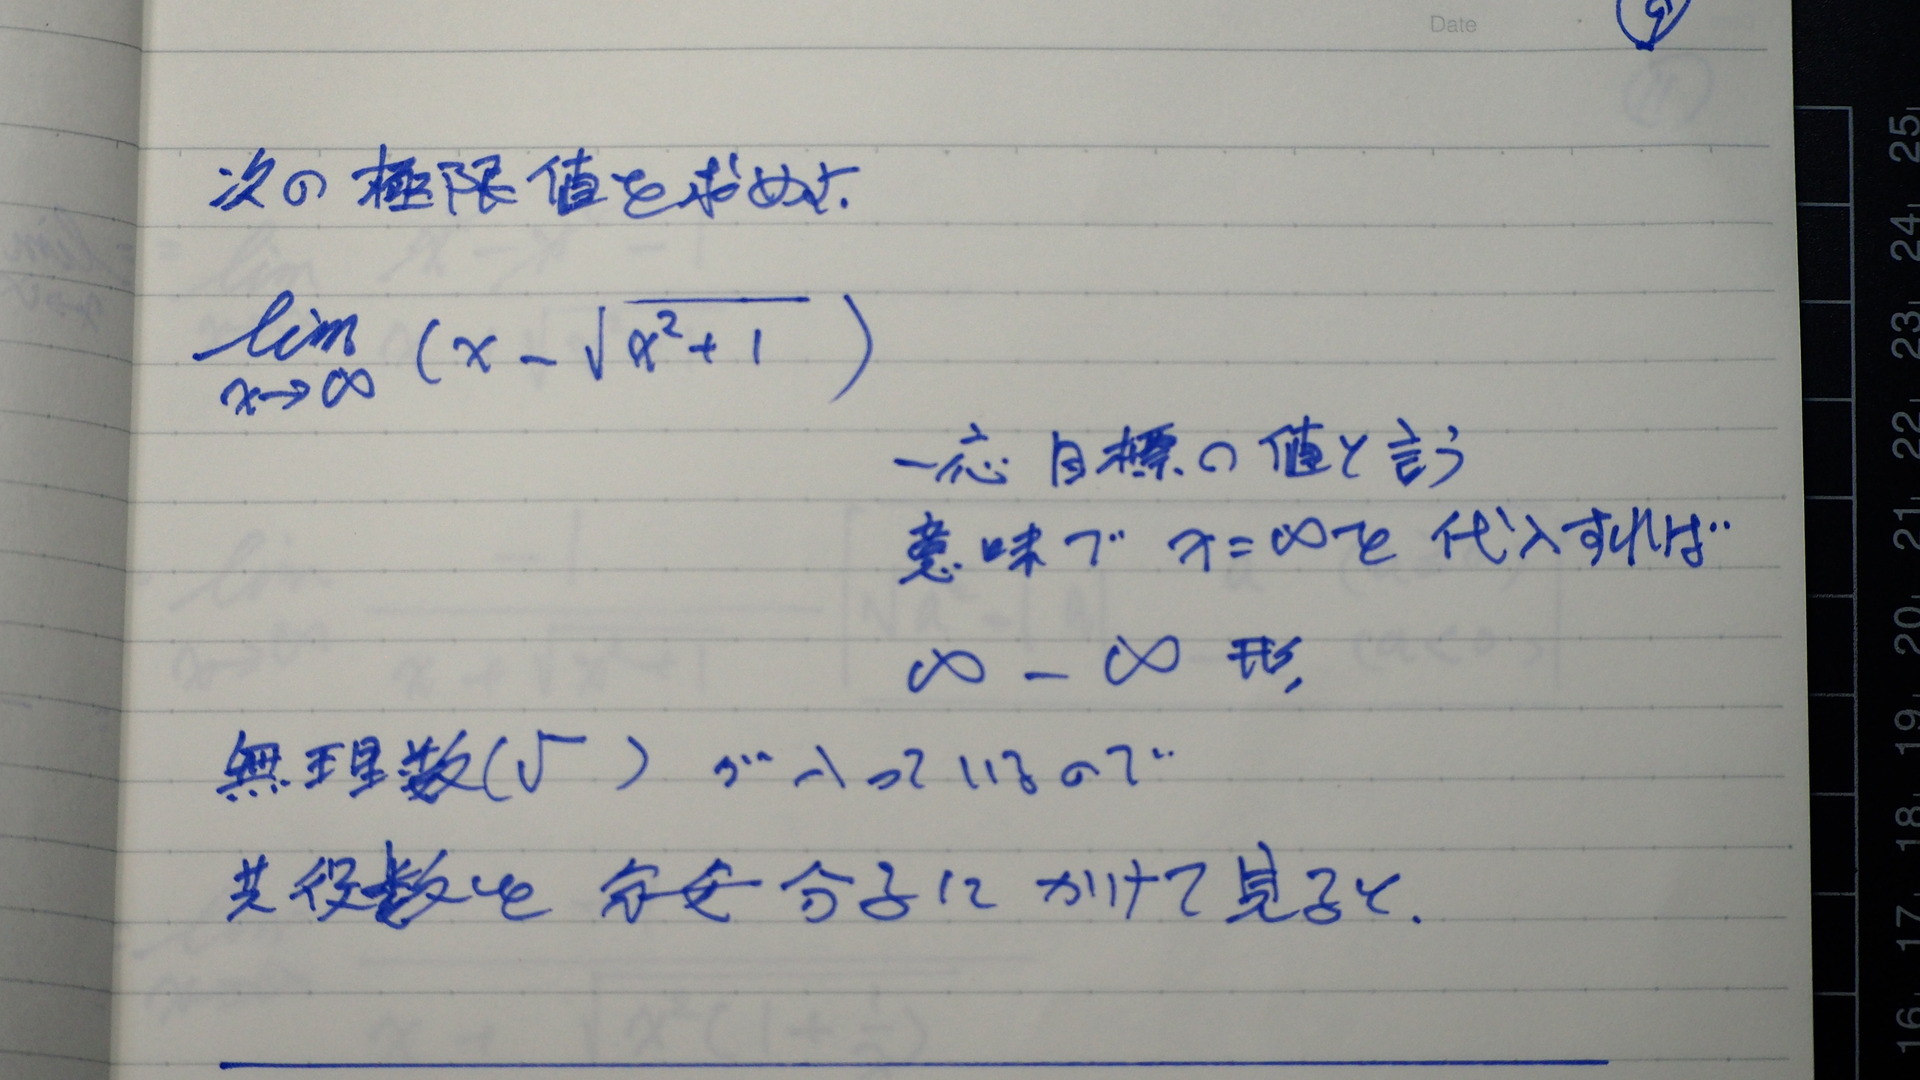 Date
次の極限値を求めよ.
lim (x - √x²+1 )
x→∞
一応 目標の値と言う
意味で x=∞を代入すれば
∞ - ∞ 形,
無理数(√ ) が入っているので
共役数を 分母 分子に かけて見ると.
25
24
23
22
21
20
19
18
17
16